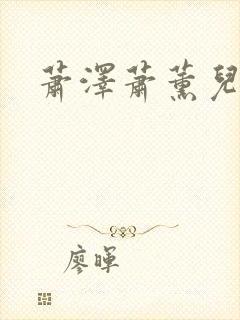 蕭澤蕭薰兒
廖暉